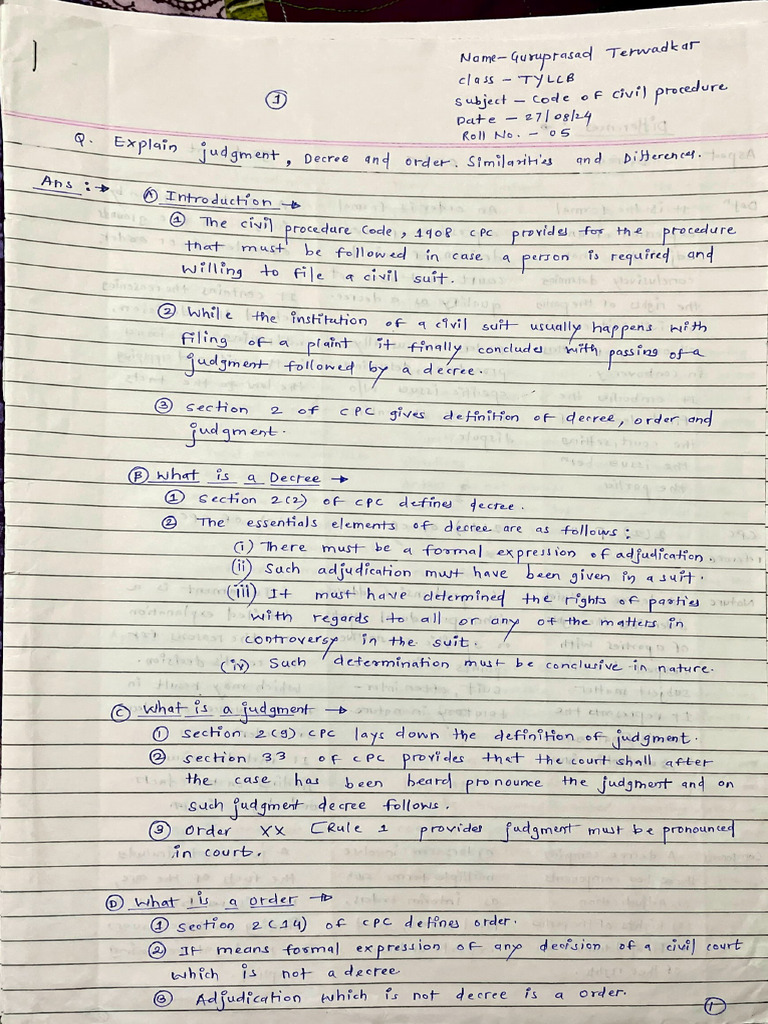 Name - Guruprasad Terwadkar
class - TYLLB
①
Subject - Code of civil procedure
Date - 27/08/24
Roll No. - 05
Q. Explain judgment, Decree and order. Similarities and Differences.
Ans :→ Ⓐ Introduction →
① The civil procedure Code, 1908 CPC provides for the procedure
that must be followed in case a person is required and
willing to file a civil suit.
② While the institution of a civil suit usually happens with
filing of a plaint it finally concludes with passing of a
judgment followed by a decree.
③ section 2 of CPC gives definition of decree, order and
judgment.
Ⓑ What is a Decree →
① section 2(2) of CPC defines decree.
② The essentials elements of decree are as follows :
(i) There must be a formal expression of adjudication.
(ii) Such adjudication must have been given in a suit.
(iii) It must have determined the rights of parties
with regards to all or any of the matters in
controversy in the suit.
(iv) Such determination must be conclusive in nature.
Ⓒ What is a judgment →
① section 2(9) CPC lays down the definition of judgment.
② section 33 of CPC provides that the court shall after
the case has been heard pronounce the judgment and on
such judgment decree follows.
③ Order XX [Rule 1 provides judgment must be pronounced
in court.
Ⓓ What is a order →
① section 2(14) of CPC defines order.
② It means formal expression of any decision of a civil court
which is not a decree
③ Adjudication which is not decree is a order.
①